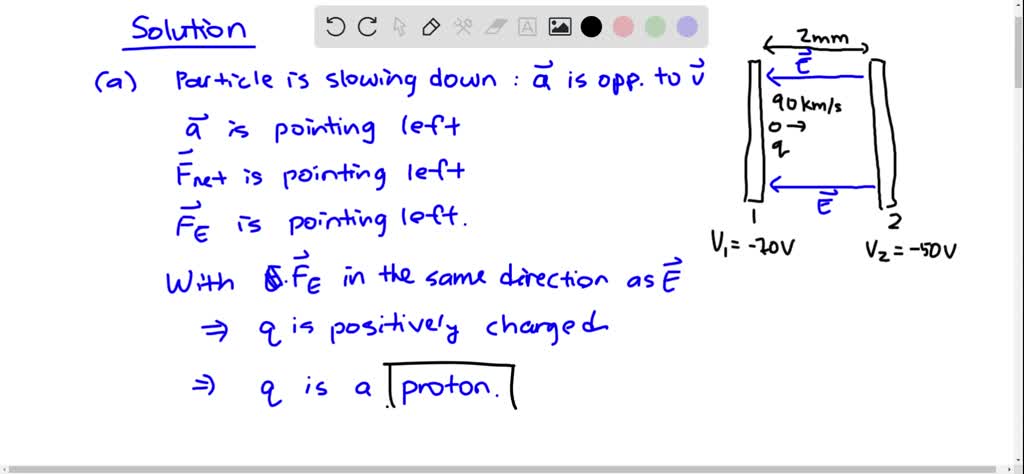 Solution
(a) Particle is slowing down : a⃗ is opp. to v⃗
a⃗ is pointing left
F⃗net is pointing left
F⃗E is pointing left.
With F⃗E in the same direction as E⃗
⇒ q is positively charged
⇒ q is a proton.
2mm
E⃗
90km/s
q
E⃗
1
2
V₁ = -70V
V₂ = -50V
A